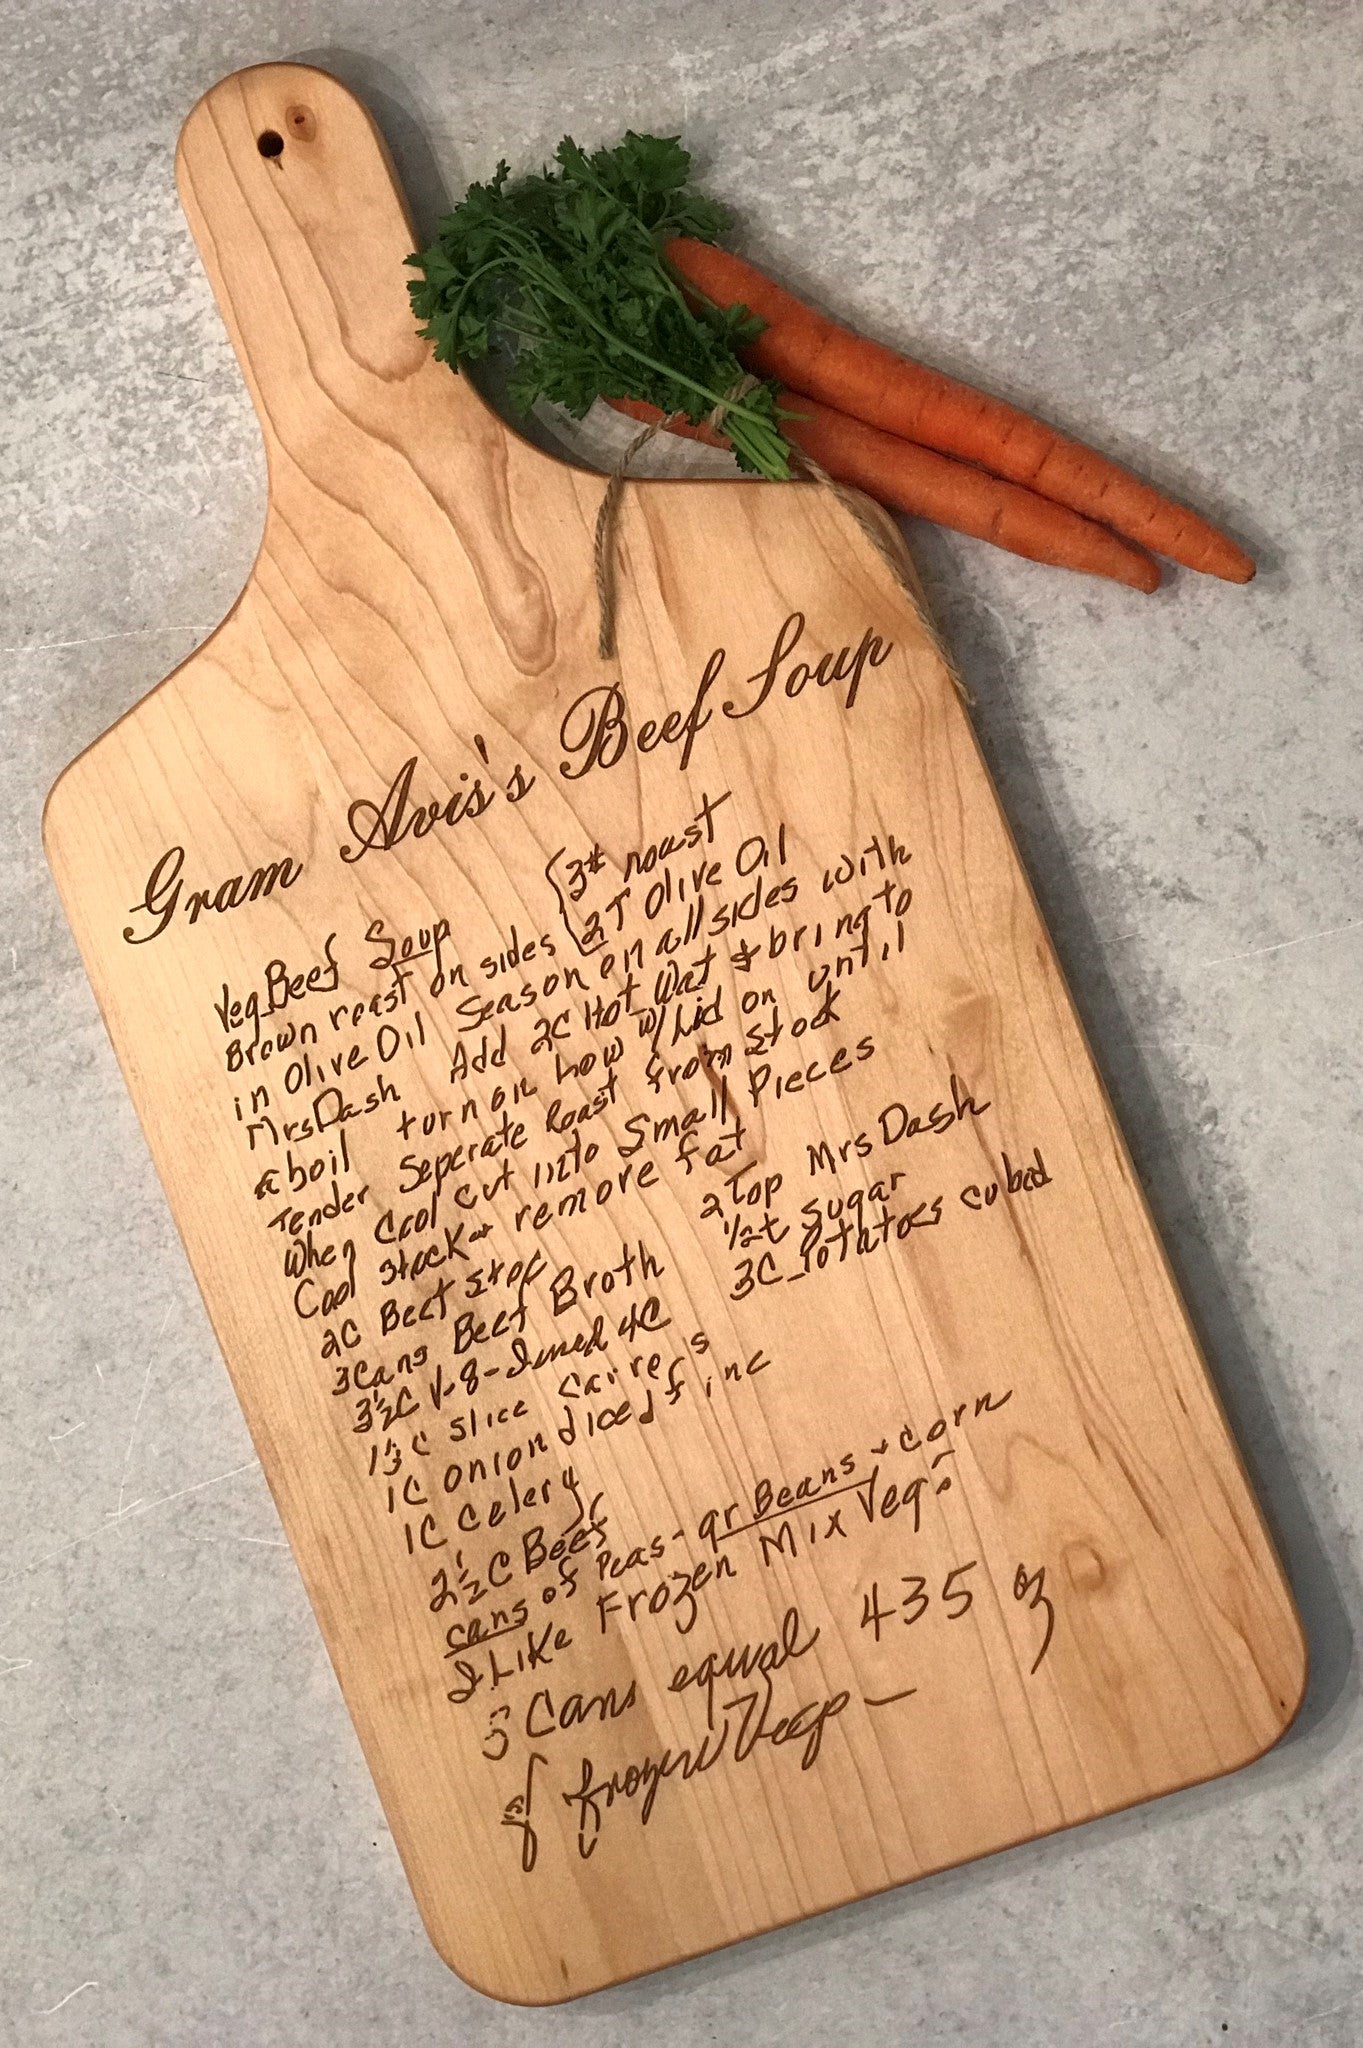 Gram Avis's Beef Soup
Veg Beef Soup
{3# roast
2T Olive Oil
Brown roast on sides
in Olive Oil Season on all sides with
MrsDash Add 2C Hot Wat & bring to
a boil turn on Low w/Lid on until
Tender Seperate Roast from Stock
When Cool cut into Small Pieces
Cool Stock remove fat
2C Beef Stoc
3 Cans Beef Broth
3½C V-8- 4C
1⅓C Slice
1C onion diced finc
1C Celery
2½C Beef
2 Tsp MrsDash
½t Sugar
3C Potatoes cubed
cans of Peas - gr Beans & Corn
I Like Frozen Mix Veg
3 Cans equal 435 oz
of frozen Veg —